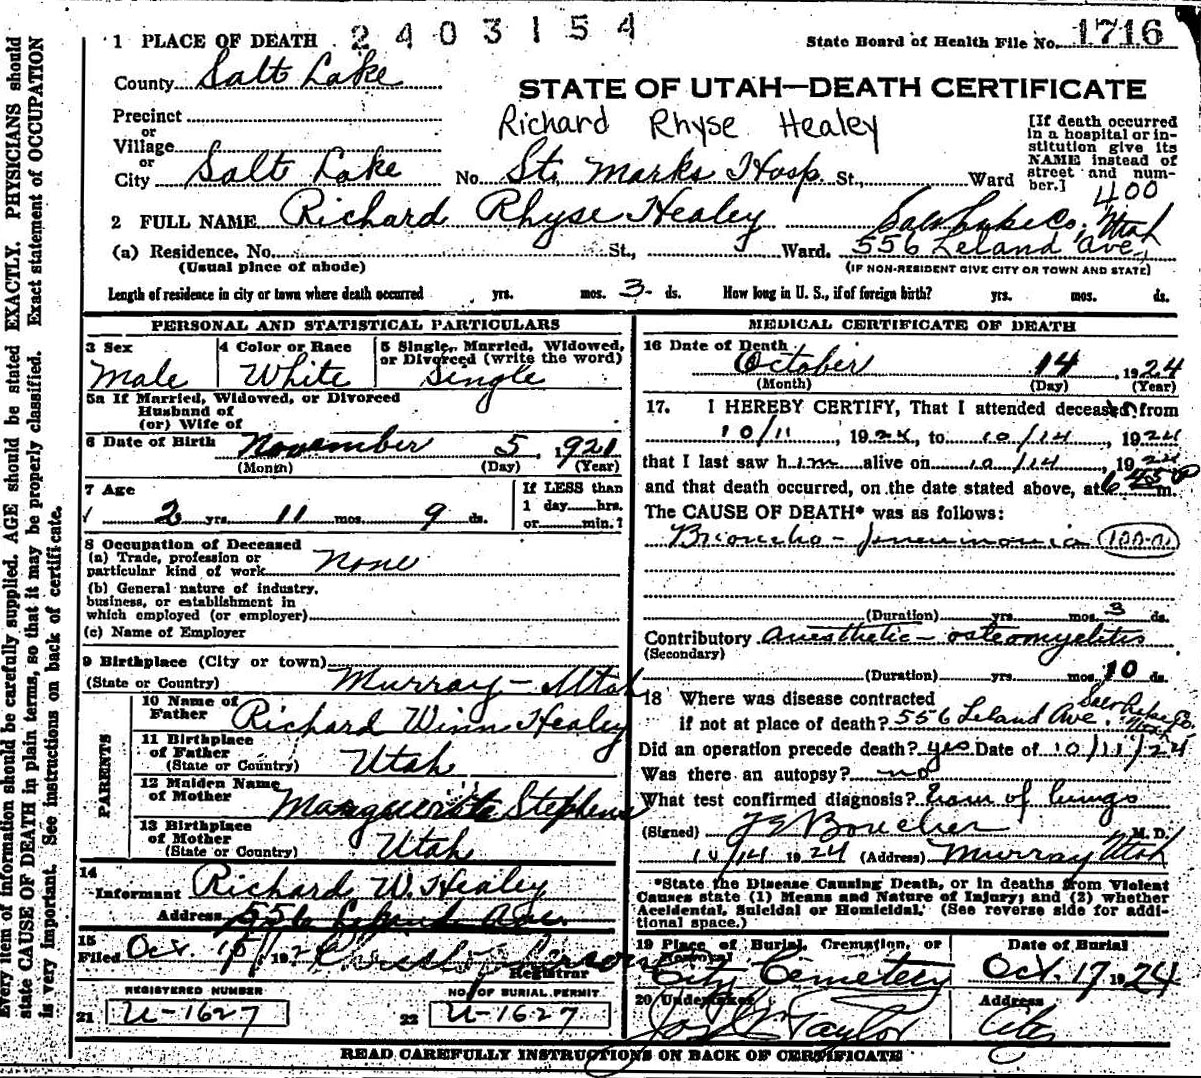 2403154
State Board of Health File No. 1716
1 PLACE OF DEATH
County Salt Lake
STATE OF UTAH—DEATH CERTIFICATE
Precinct
or
Village
or
City Salt Lake No. St. Marks Hosp. St., Ward
Richard Rhyse Healey
[If death occurred in a hospital or institution give its NAME instead of street and number.]
400
2 FULL NAME Richard Rhyse Healey
Salt Lake Co, Utah
(a) Residence. No. St., Ward. 556 Leland Ave,
(Usual place of abode) (IF NON-RESIDENT GIVE CITY OR TOWN AND STATE)
Length of residence in city or town where death occurred yrs. mos. 3 ds. How long in U. S., if of foreign birth? yrs. mos. ds.
PERSONAL AND STATISTICAL PARTICULARS
3 Sex 4 Color or Race 5 Single, Married, Widowed, or Divorced (write the word)
Male White Single
5a If Married, Widowed, or Divorced
Husband of
(or) Wife of
6 Date of Birth November 5, 1921
(Month) (Day) (Year)
7 Age
2 yrs. 11 mos. 9 ds.
If LESS than
1 day hrs.
or min.?
8 Occupation of Deceased
(a) Trade, profession or
particular kind of work None
(b) General nature of industry,
business, or establishment in
which employed (or employer)
(c) Name of Employer
9 Birthplace (City or town)
(State or Country) Murray - Utah
PARENTS
10 Name of
Father Richard Winn Healey
11 Birthplace
of Father
(State or Country) Utah
12 Maiden Name
of Mother Marguerite Stephens
13 Birthplace
of Mother
(State or Country) Utah
14
Informant Richard W. Healey
Address 556 Leland Ave.
15
Filed Oct. 15/192
Registrar
REGISTERED NUMBER No. of BURIAL PERMIT
21 U-1627 22 U-1627
MEDICAL CERTIFICATE OF DEATH
16 Date of Death
October 14, 1924
(Month) (Day) (Year)
17. I HEREBY CERTIFY, That I attended deceased from
10/11, 1924, to 10/14, 1924
that I last saw him alive on 10/14, 1924
and that death occurred, on the date stated above, at 6 45 P m.
The CAUSE OF DEATH* was as follows:
Broncho-pneumonia
(Duration) yrs. mos. 3 ds.
Contributory Anesthetic - osteomyelitis
(Secondary)
(Duration) yrs. mos. 10 ds.
18 Where was disease contracted
if not at place of death? 556 Leland Ave. Salt Lake Co Utah
Did an operation precede death? yes Date of 10/11/24
Was there an autopsy? no
What test confirmed diagnosis? Exam of lungs
(Signed) Boucher M. D.
10/14 1924 (Address) Murray Utah
*State the Disease Causing Death, or in deaths from Violent
Causes state (1) Means and Nature of Injury; and (2) whether
Accidental, Suicidal or Homicidal. (See reverse side for additional space.)
19 Place of Burial, Cremation, or Removal Date of Burial
City Cemetery Oct. 17 1924
20 Undertaker Address
Taylor City
READ CAREFULLY INSTRUCTIONS ON BACK OF CERTIFICATE
Every item of information should be carefully supplied. AGE should be stated EXACTLY. PHYSICIANS should
state CAUSE OF DEATH in plain terms, so that it may be properly classified. Exact statement of OCCUPATION
is very important. See instructions on back of certificate.